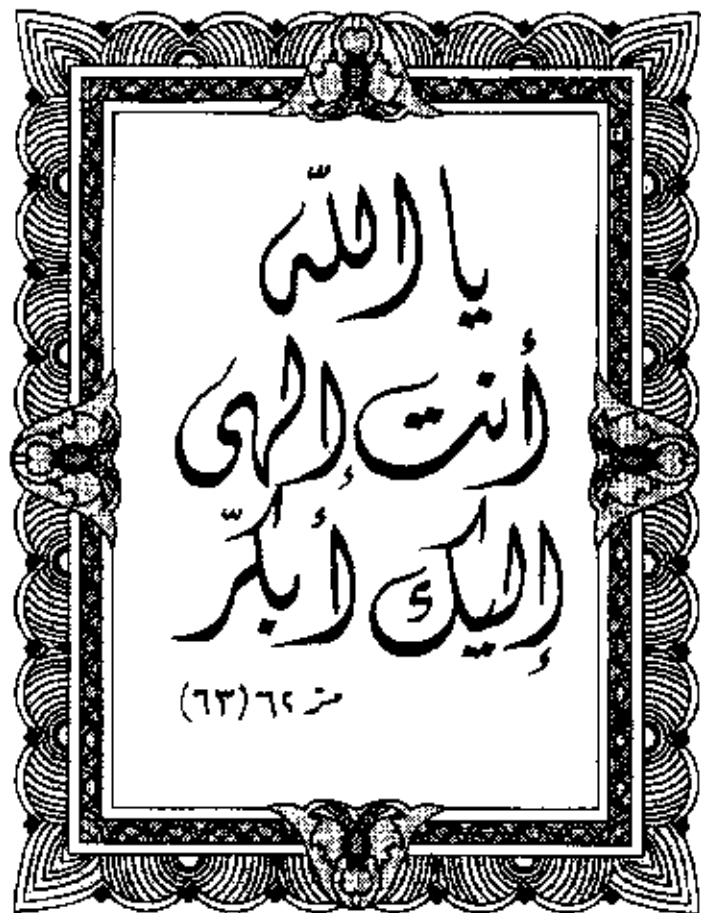 يا اللّه
أنت إلهي
إليك أبكّر
مز ٦٢ (٦٣)